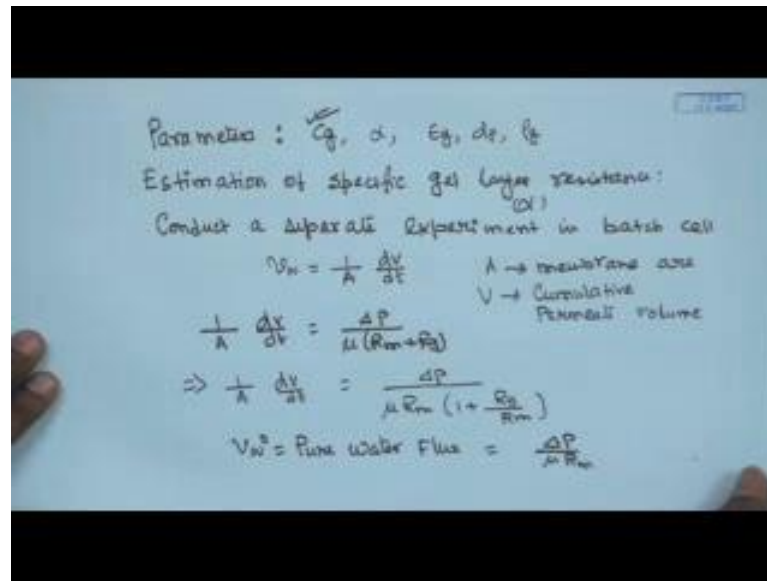 Parameters : Cg, α, εg, dp, ρg
Estimation of specific gel layer resistance:
(α)
Conduct a separate experiment in batch cell
Vw = 1/A dV/dt A → membrane are
V → Cumulative
Permeate volume
1/A dV/dt = ΔP / μ(Rm+Rg)
⇒ 1/A dV/dt = ΔP / μRm (1+ Rg/Rm)
Vw° = Pure water Flux = ΔP / μRm